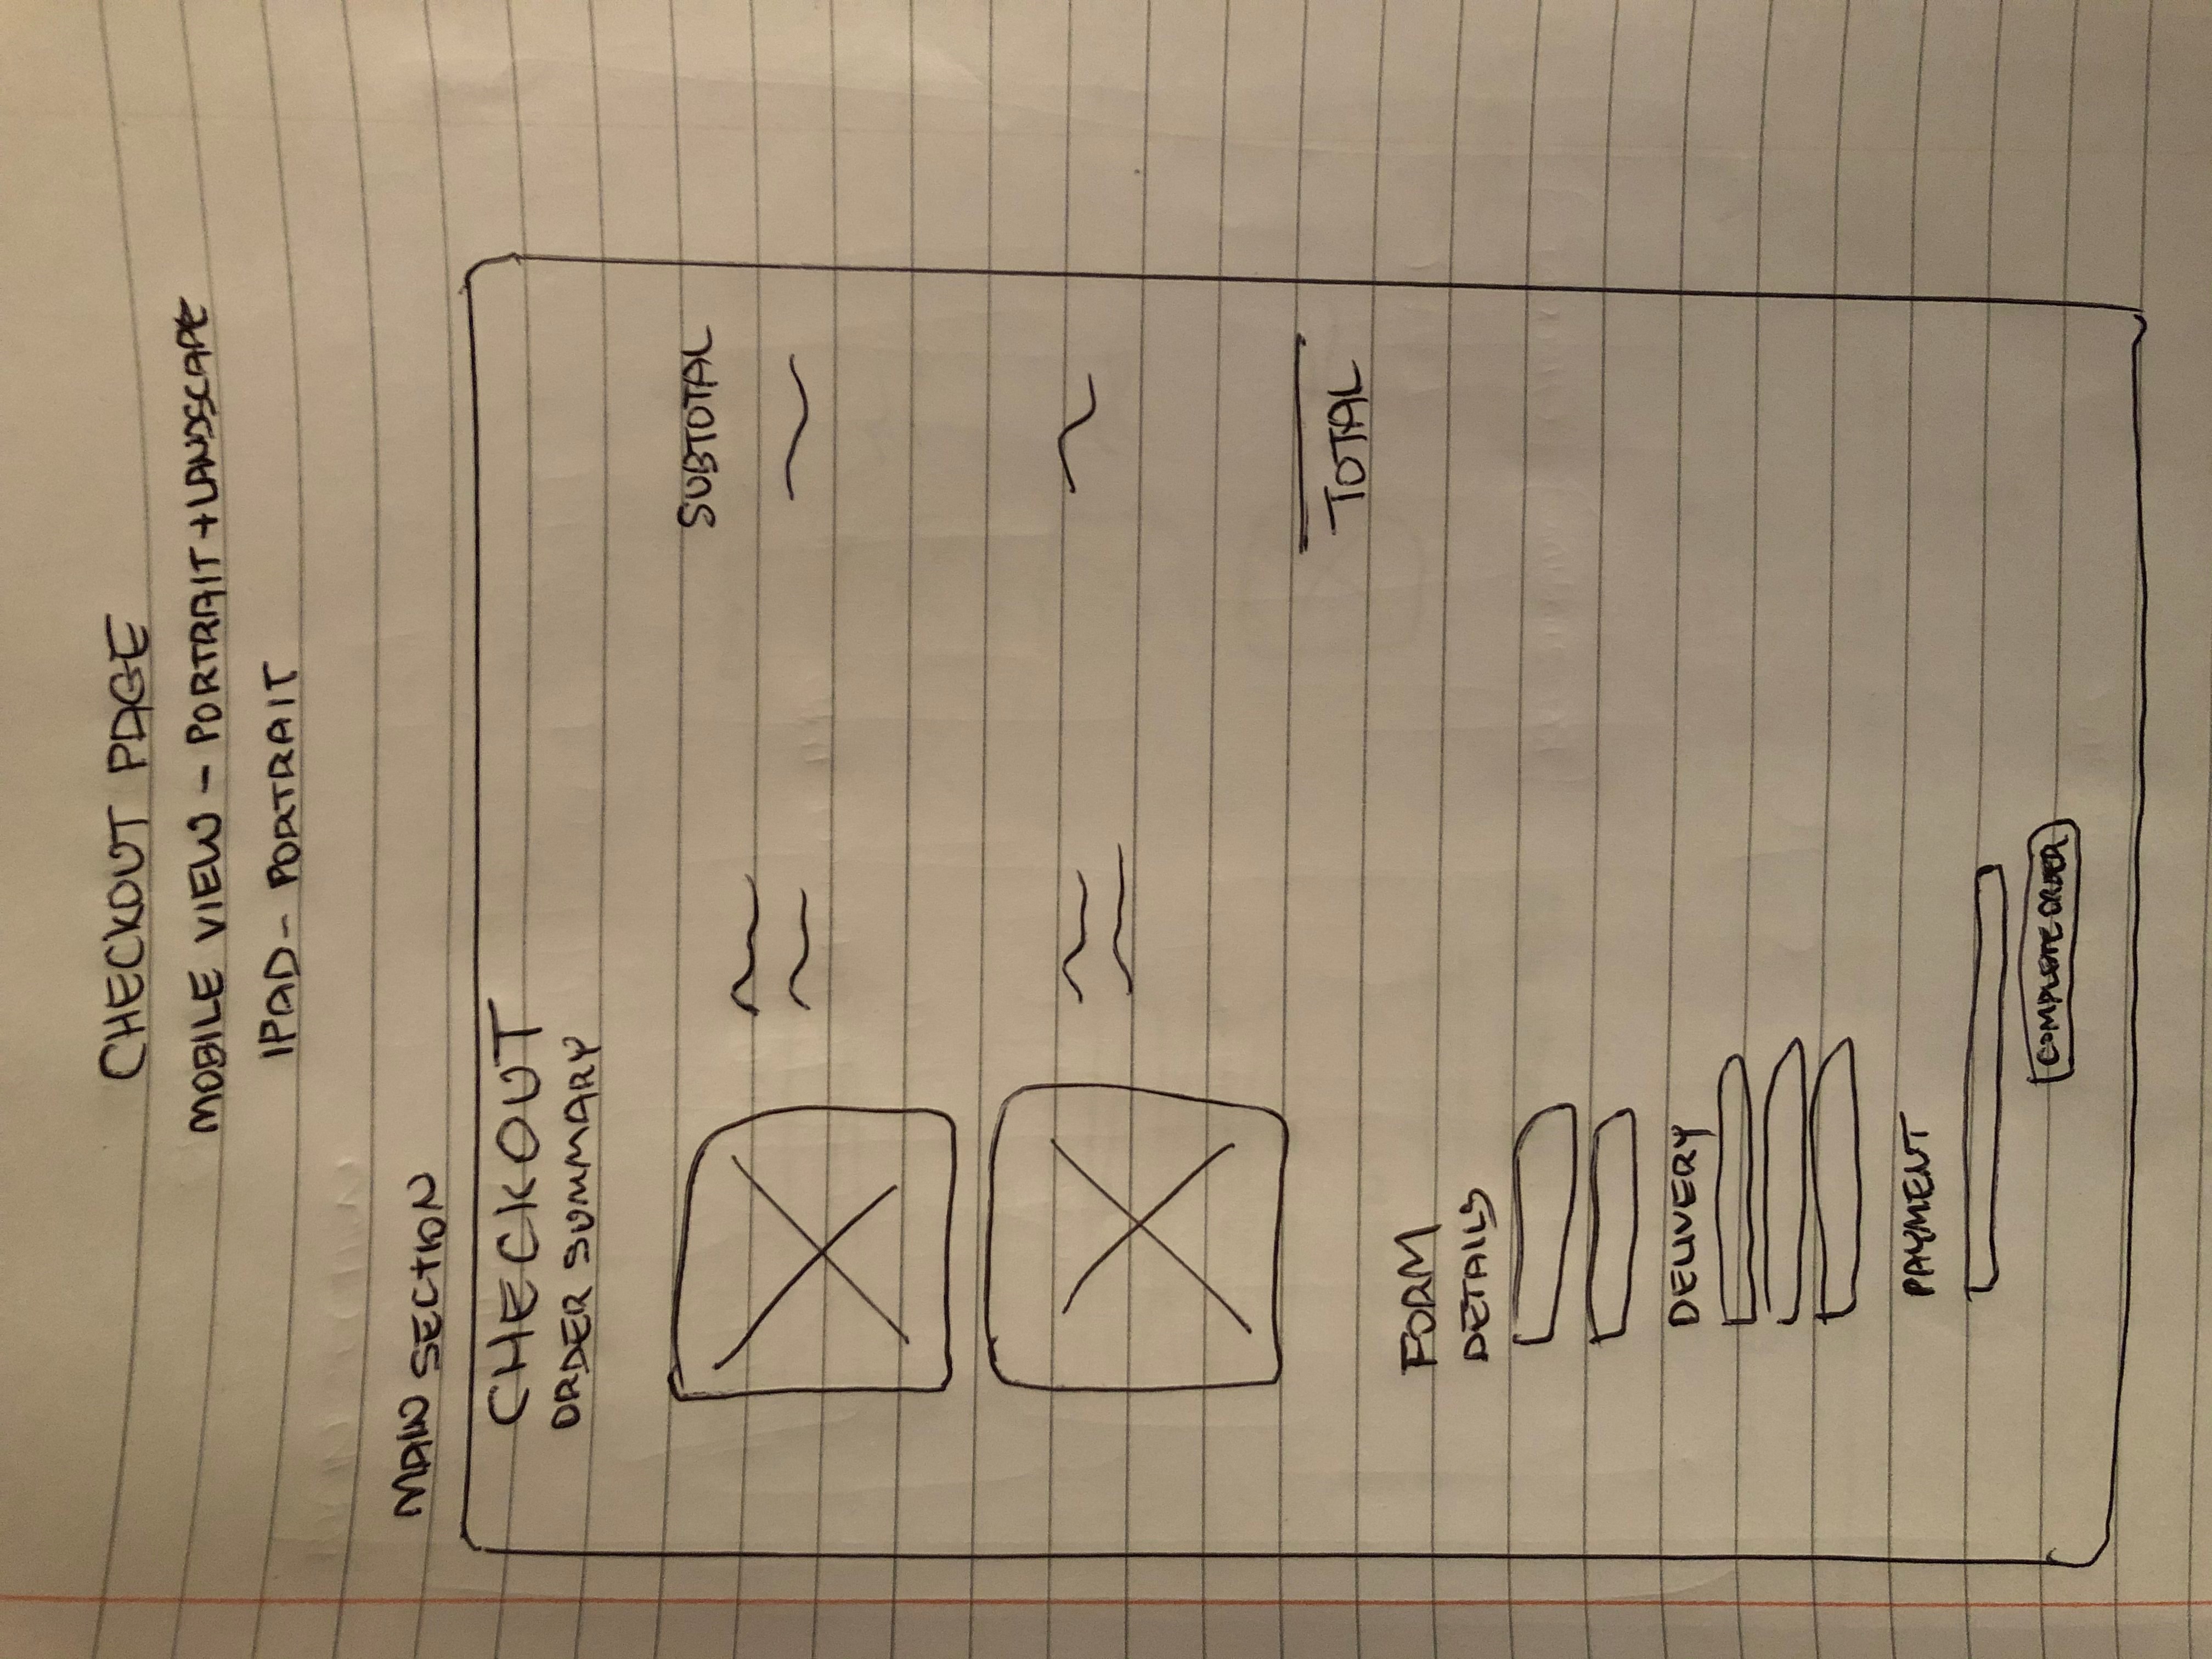 CHECKOUT PAGE
MOBILE VIEW - PORTRAIT + LANDSCAPE
IPAD - PORTRAIT
MAIN SECTION
CHECKOUT
ORDER SUMMARY
SUBTOTAL
TOTAL
FORM
DETAILS
DELIVERY
PAYMENT
COMPLETE ORDER